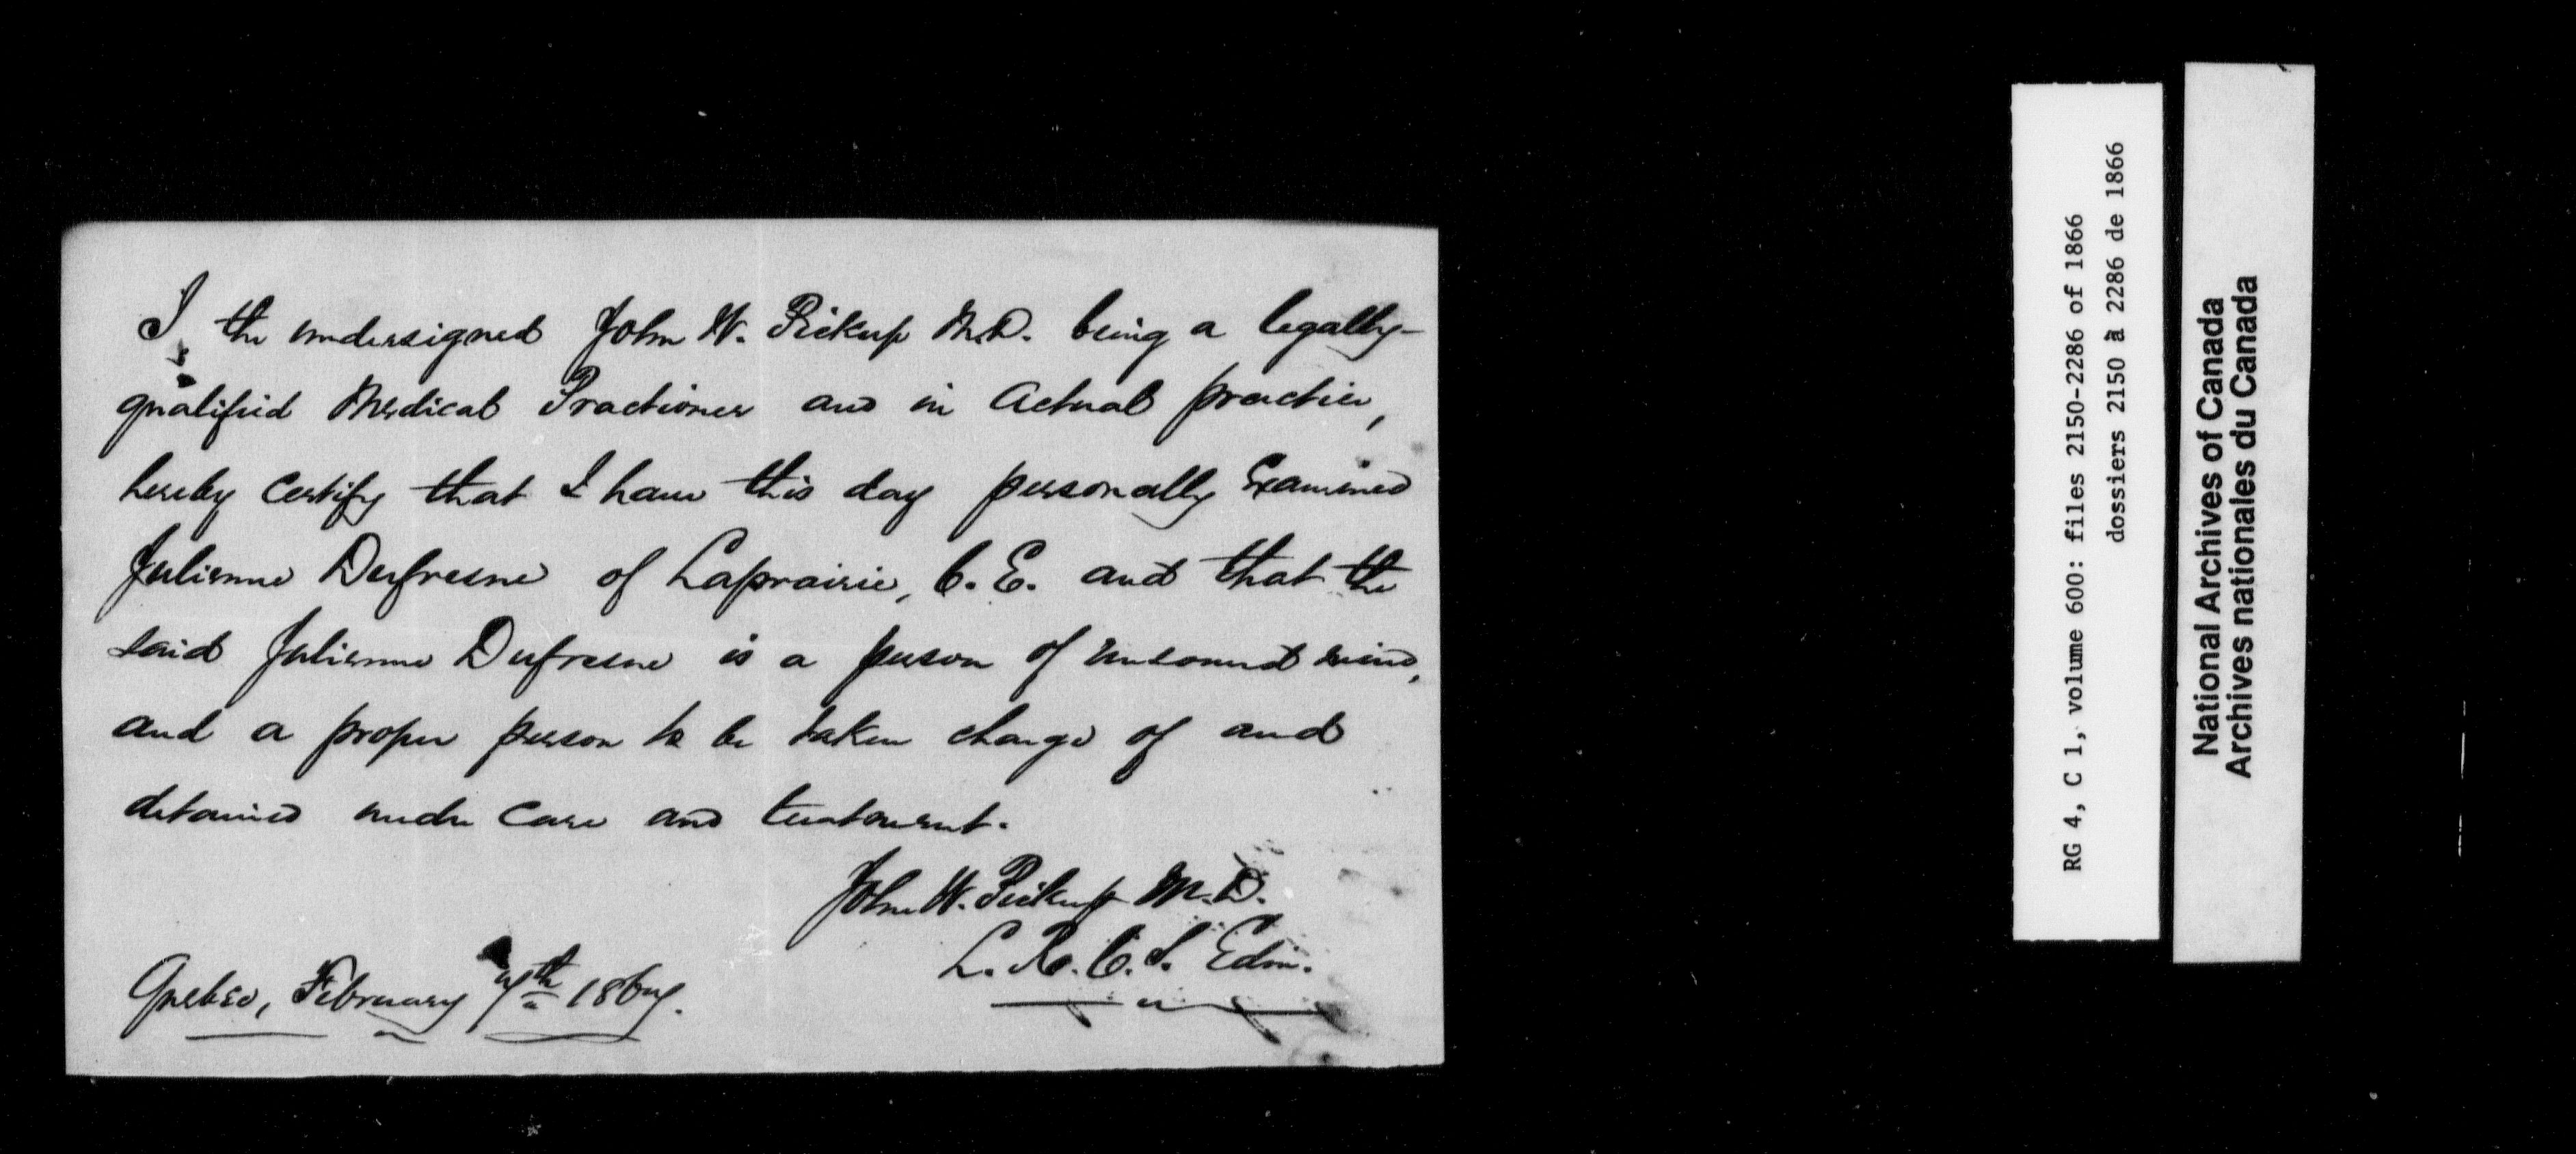 I, the undersigned John W. Pickup M.D. being a legally-
qualified Medical Practioner and in Actual practice,
hereby Certify that I have this day personally Examined
Julienne Dufresne of Laprairie, C.E. and that the
said Julienne Dufresne is a person of unsound mind,
and a proper person to be taken charge of and
detained under Care and treatment.
John W. Pickup M.D.
L.R.C.S. Edin.
Quebec, February 7th 1867.
RG 4, C 1, volume 600: files 2150-2286 of 1866
dossiers 2150 à 2286 de 1866
National Archives of Canada
Archives nationales du Canada